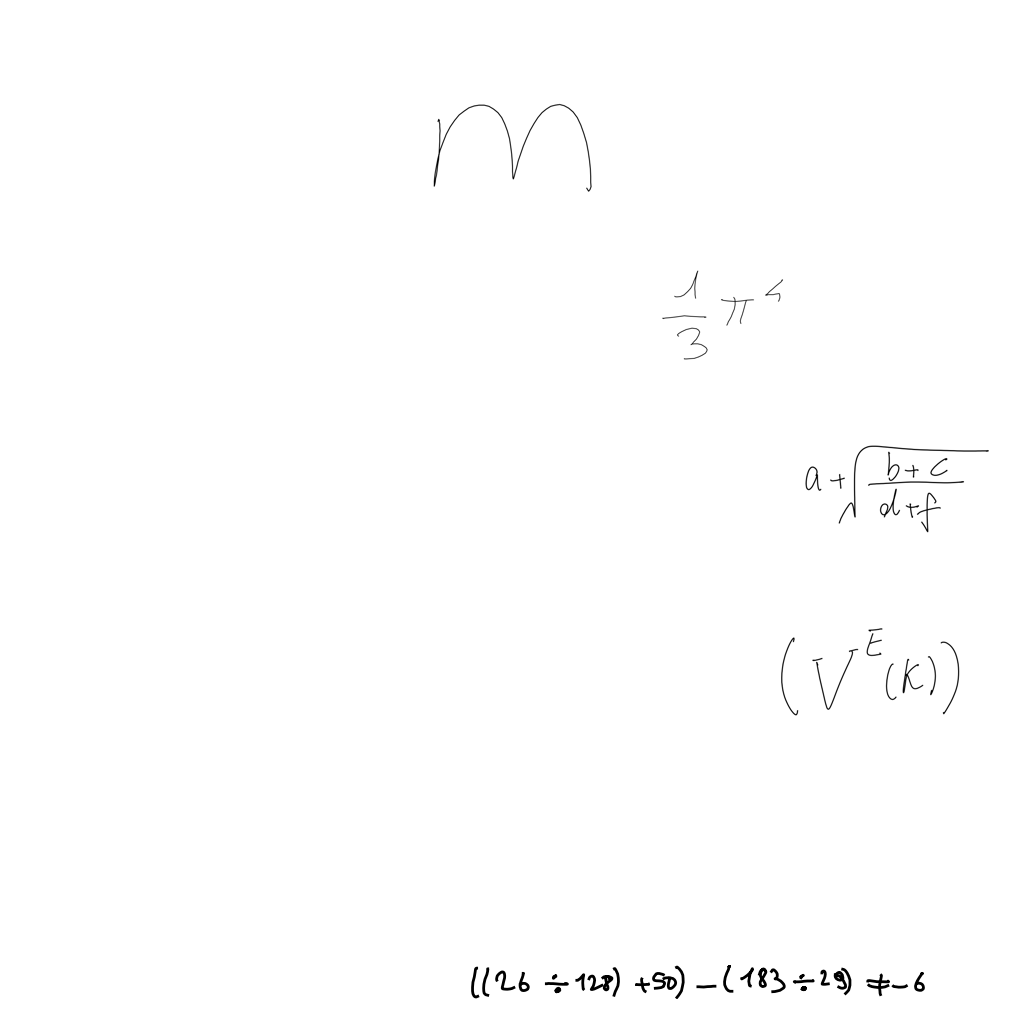 m
\frac{1}{3} \pi^{4}
a + \sqrt{\frac{b+c}{d+f}}
(V^{E}(K))
((26 ÷ 128) + 50) - (183 ÷ 29) ≠ - 6